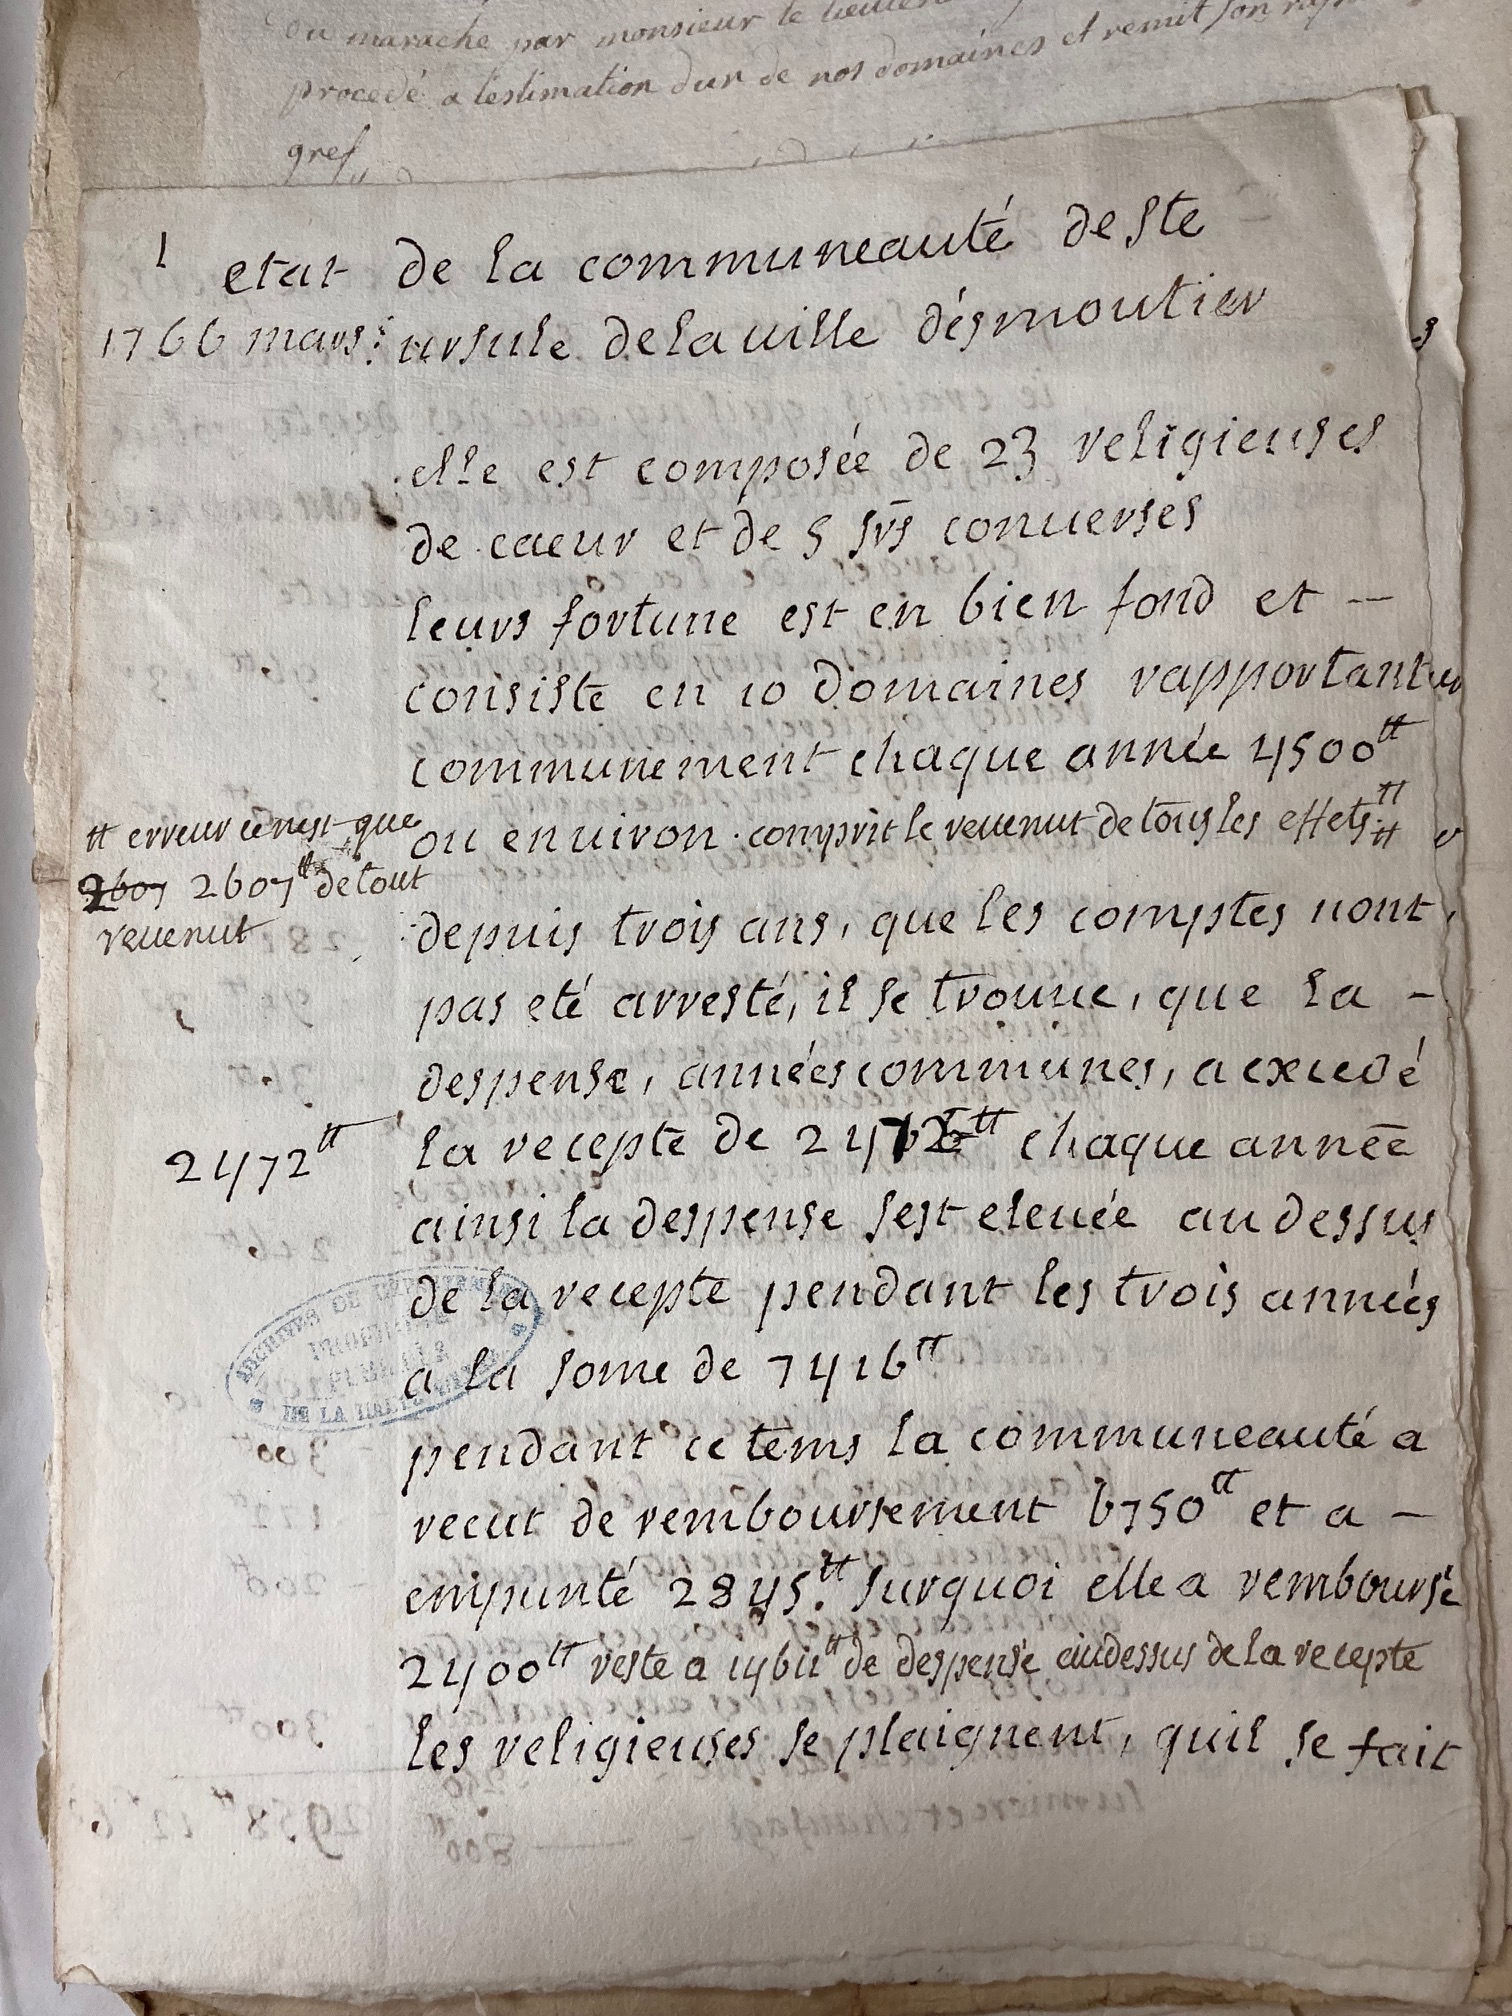 ou marache par monsieur le
procedé a lestimation dun de nos domaines et remit son
gref
1
etat de la communeauté de Ste
1766 mars: ursule de la ville désmoutier
elle est composée de 23 religieuses
de caeur et de 5 srs conuerses
leurs fortune est en bien fond et --
consiste en 10 domaines rapportant
communement chaque année 4500tt
ou enuiron. comprit le reuenut de tous les effets tt
tt erreur ce nest que
2607 2607tt de tout
reuenut
depuis trois ans, que les comptes nont
pas eté arresté, il se trouue, que la -
despense, années communes, a excedé
2472tt
la recepte de 2472tt chaque année
ainsi la despense sest eleuée au dessus
de la recepte pendant les trois années
a la some de 7416tt
pendant ce tems la communeauté a
recut de remboursement 6750tt et a -
empunté 2845tt. surquoi elle a remboursé
2400tt reste a de despense audessus de la recepte
les religieuses se plaignent, quil se fait
ARCHIVES DE
PROPRIÉTÉ
DE LA HAUTE